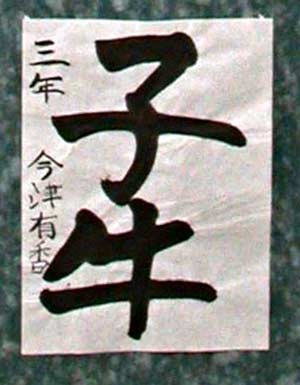 子牛
三年 今津有香